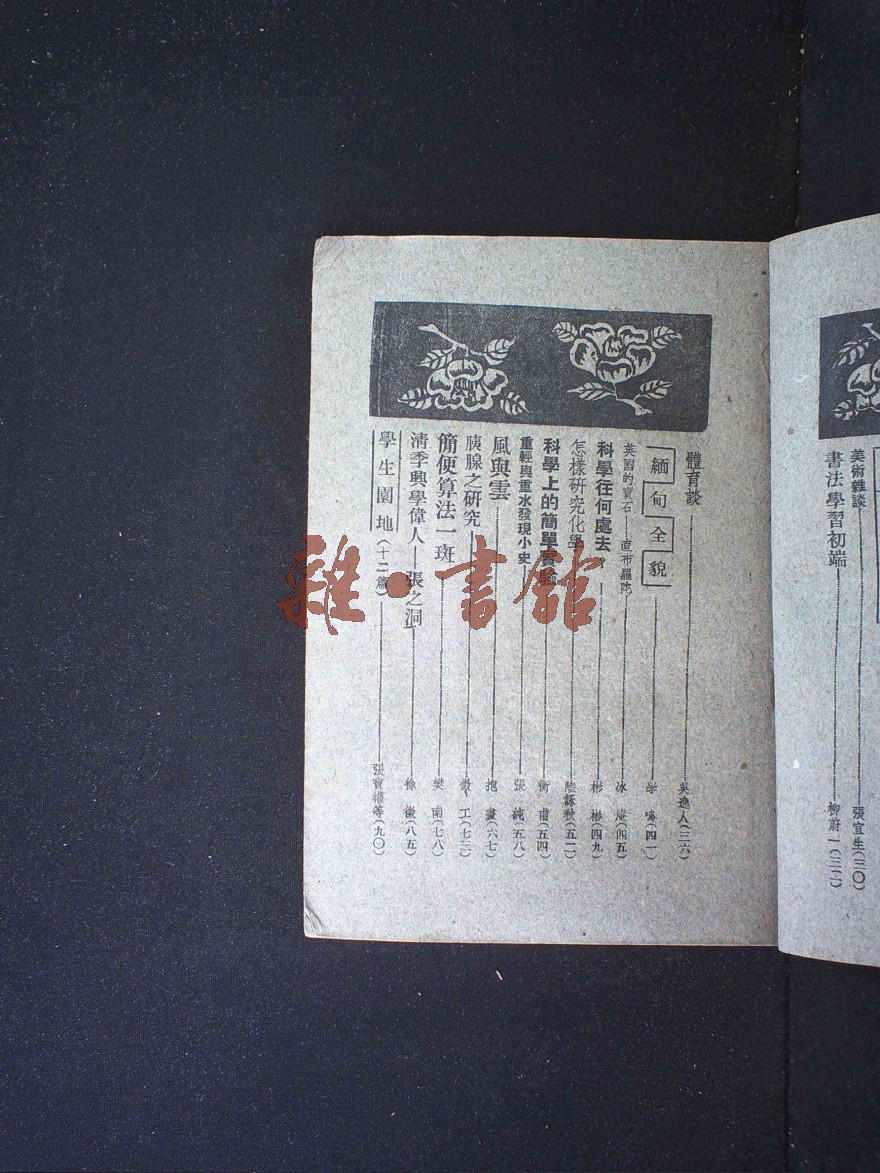 美術雜談 張宜生(三〇)
書法學習初端 柳蔚一(三二)
體育談 吳逸人(三六)
緬甸全貌 (四一)
英國的寶石——直布羅陀 冰 (四五)
科學往何處去 彬彬(四九)
怎樣研究化學 陸詠秋(五二)
科學上的簡單實驗 衛甫(五四)
重輕與重水發現小史 張純(五八)
風與雲 抱盡(六七)
胰腺之研究 工(七三)
簡便算法一班 樊南(七八)
清季興學偉人——張之洞 徐徵(八五)
學生園地(十二篇) 張寶權等(九〇)
雜·書館